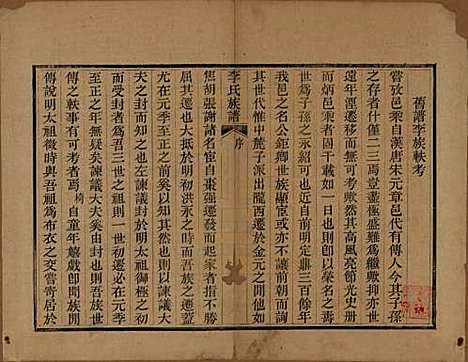 舊譜李族軼考
嘗攷邑乘自漢唐宋元章邑代有傳人今其子孫
存者什僅二三焉豈盡極盛難爲繼歟抑亦世
遠年湮遷徙不一之所致歟然其高風亮節光史册
炳邑乘者固千載如一日也則即以榮名之壽
世爲子孫之永紹可也近自前明定鼎三百餘年
我邑之名公鉅卿世族顯宦或亦不讓前朝而詢
其世代惟中麓子派出隴西遷於金元之間他如
李氏族譜
序
焦胡張謝諸名宦自棗强遷發而起家者指不
屈其遷也大抵於明初洪永之時吾族之遷蓋
亦然也而其所以知其然者則以始祖以諫議大
夫之封而知之也諫議封於明太祖御極之初
而受封者爲吾三世之祖則一世初遷必在元季
至正之年無疑矣諫議大夫奭由封也則吾族世
傳之軼事有可徵焉 椅自童年嬉戲即聞族閒
傳說明太祖微時與吾祖爲布衣之交嘗寄居於